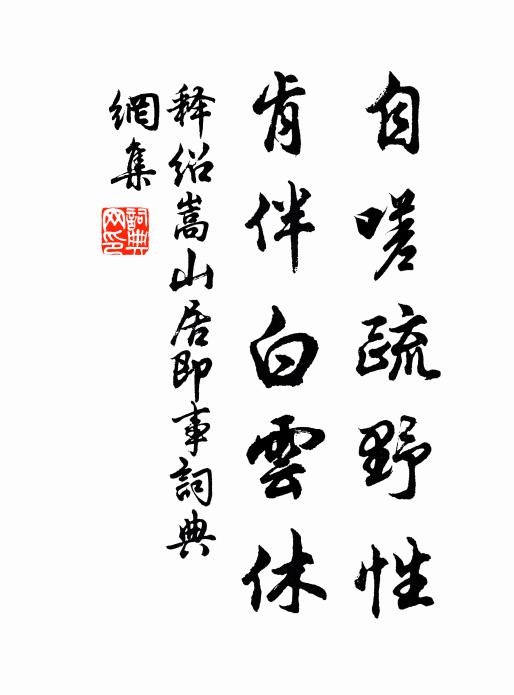 自嗟疏野性
肯伴白雲休
释绍嵩山居即事詞典
網集
詞典
网印